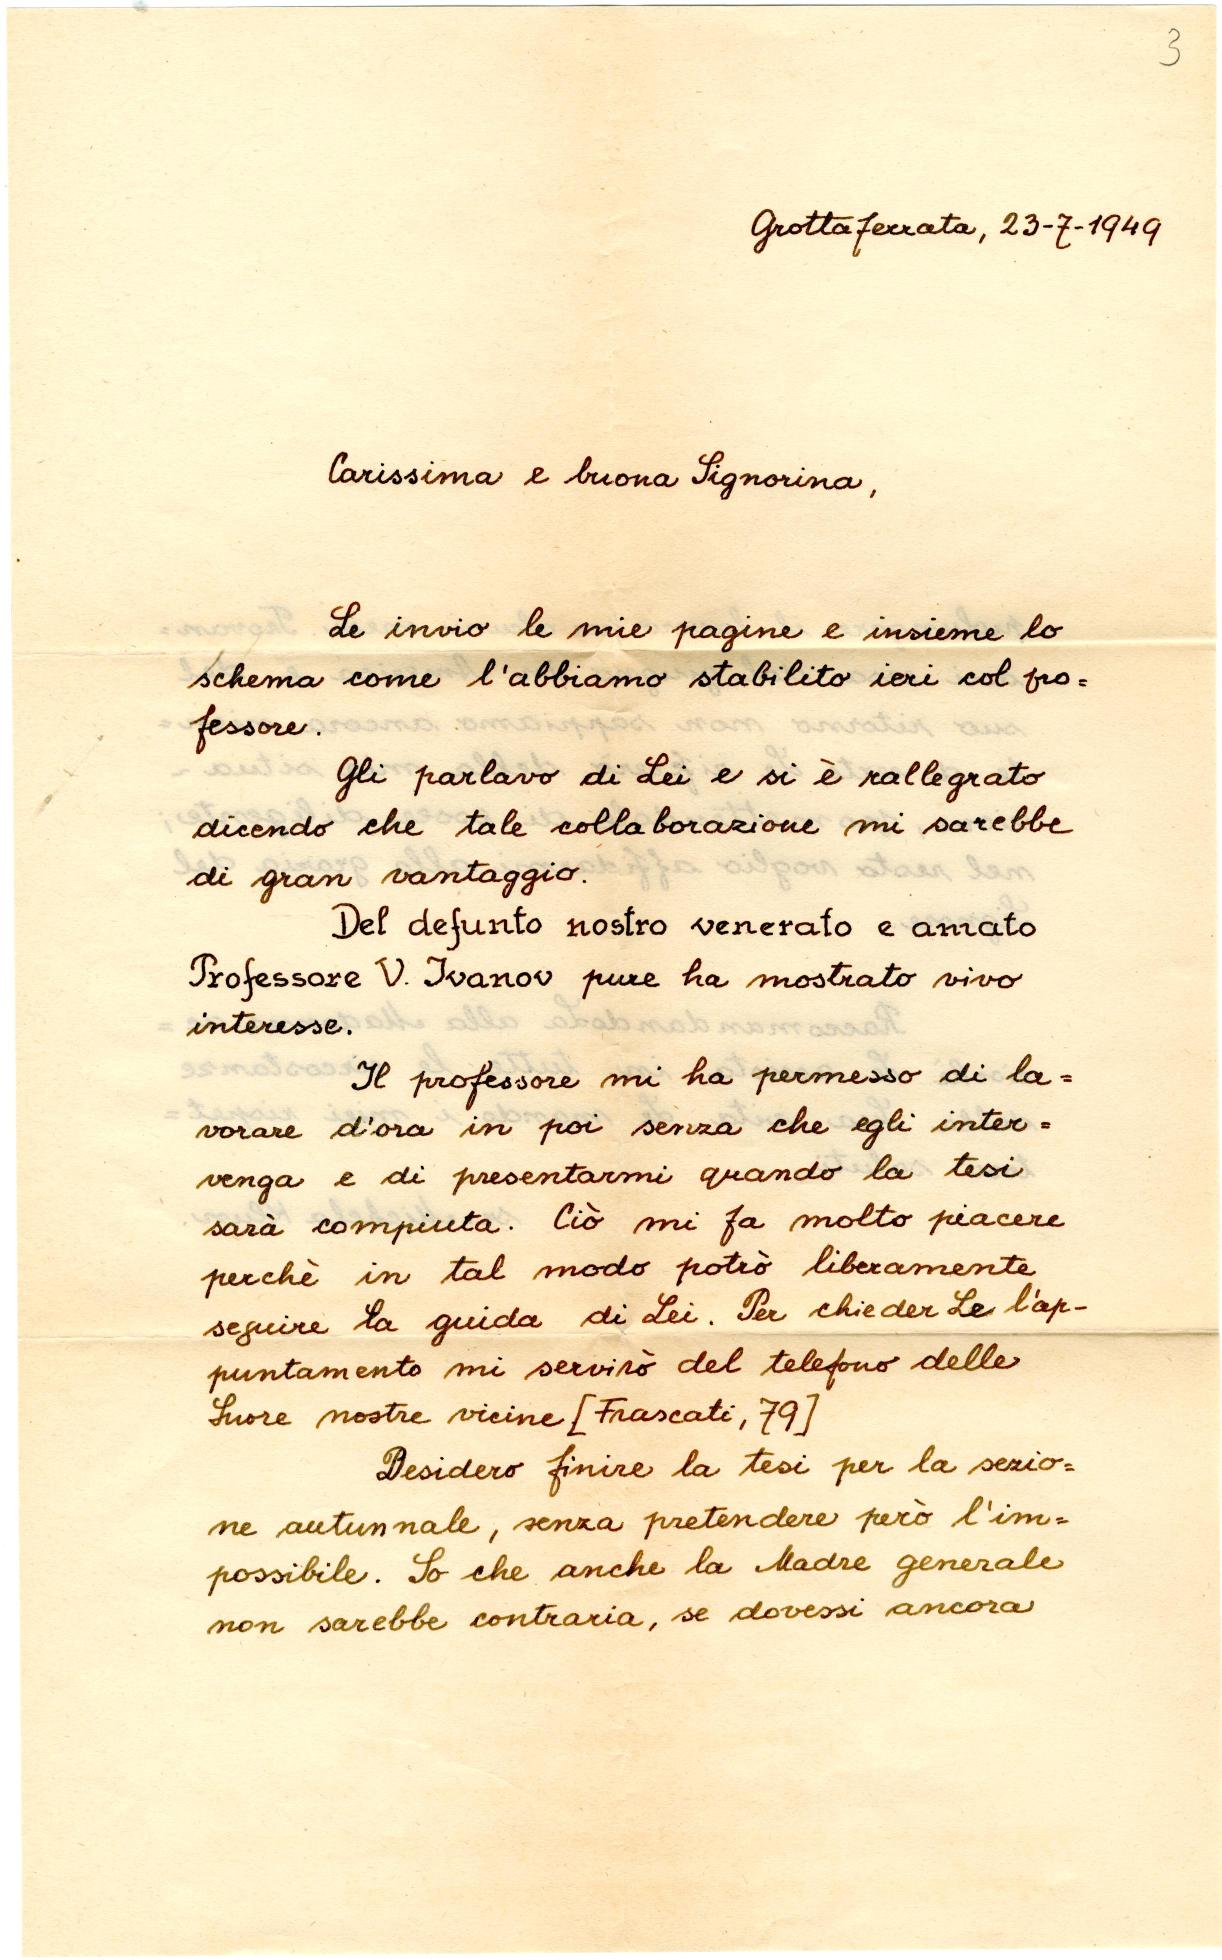 3
Grottaferrata, 23-7-1949
Carissima e buona Signorina,
Le invio le mie pagine e insieme lo
schema come l'abbiamo stabilito ieri col pro=
fessore.
Gli parlavo di Lei e si è rallegrato
dicendo che tale collaborazione mi sarebbe
di gran vantaggio.
Del defunto nostro venerato e amato
Professore V. Ivanov pure ha mostrato vivo
interesse.
Il professore mi ha permesso di la=
vorare d'ora in poi senza che egli inter=
venga e di presentarmi quando la tesi
sarà compiuta. Ciò mi fa molto piacere
perchè in tal modo potrò liberamente
seguire la guida di Lei. Per chiederLe l'ap-
puntamento mi servirò del telefono delle
Suore nostre vicine [Frascati, 79]
Desidero finire la tesi per la sezio=
ne autunnale, senza pretendere però l'im=
possibile. So che anche la Madre generale
non sarebbe contraria, se dovessi ancora